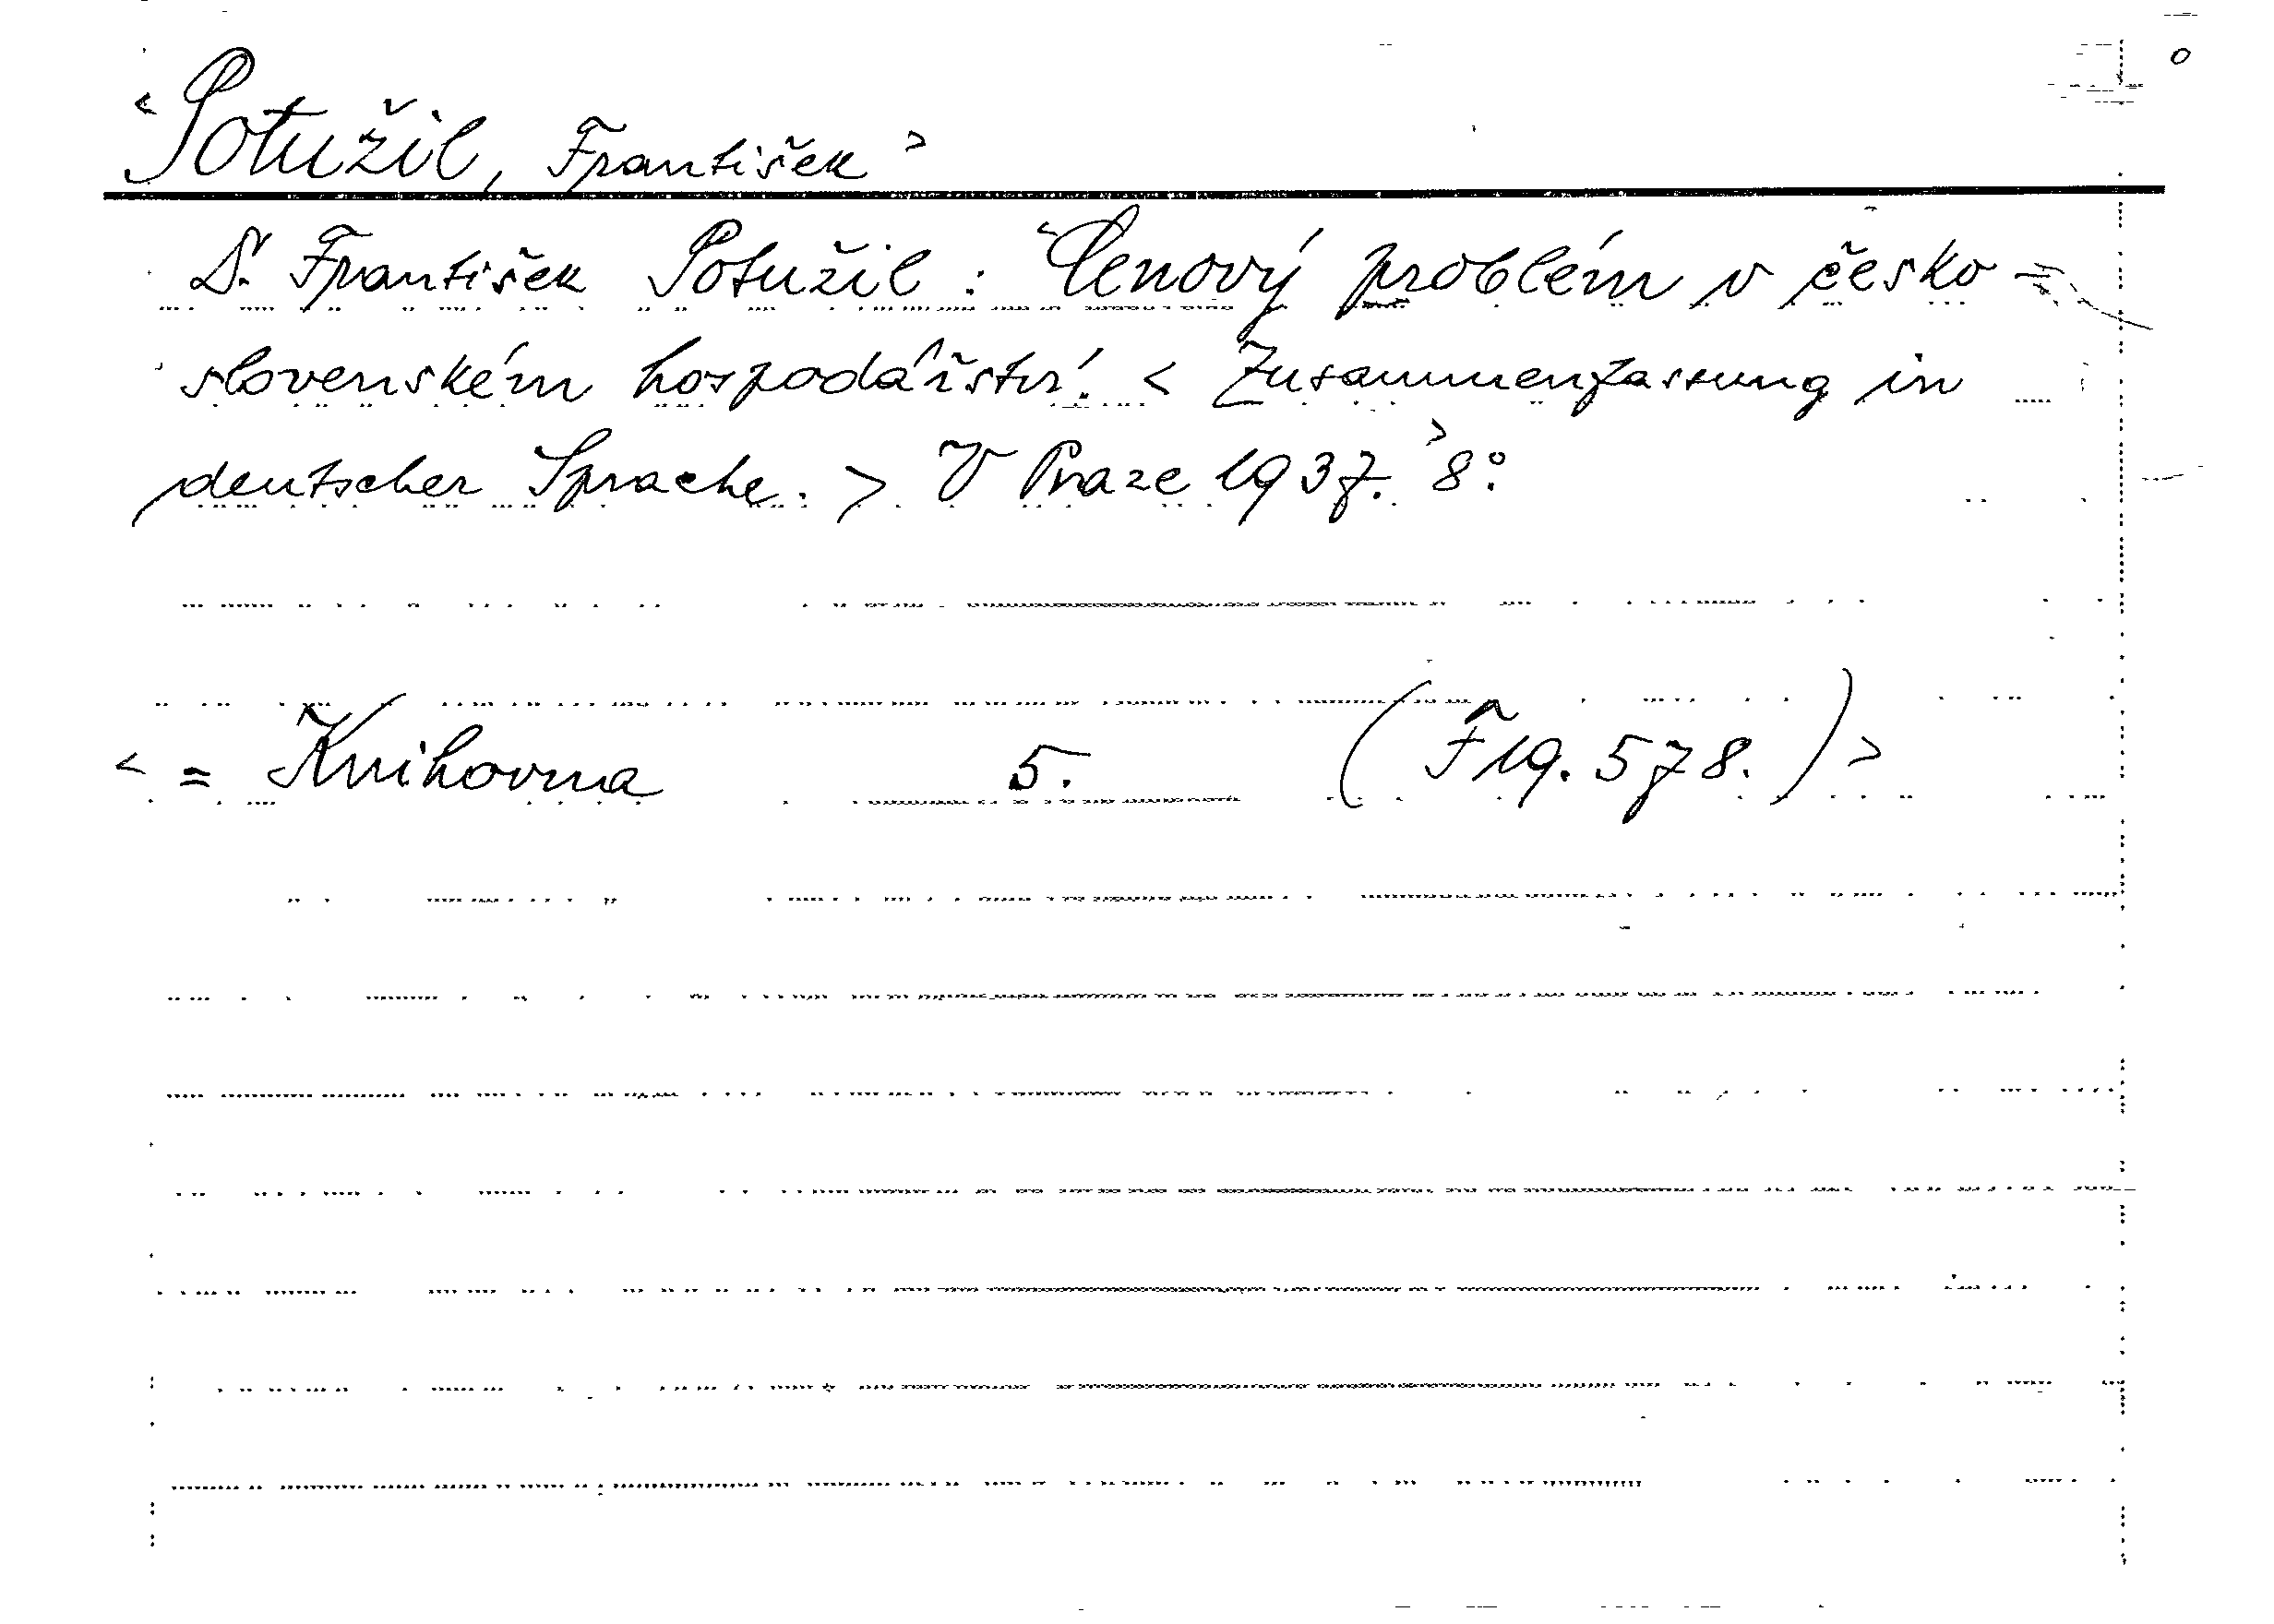 <Potužil, František>
Dr. František Potužil: <Cenový problém v česko=
slovenském hospodářství. < Zusammenfassung in
deutscher Sprache. > V Praze 1937.> 8°.
< = Knihovna 5. (F 19.578.) >